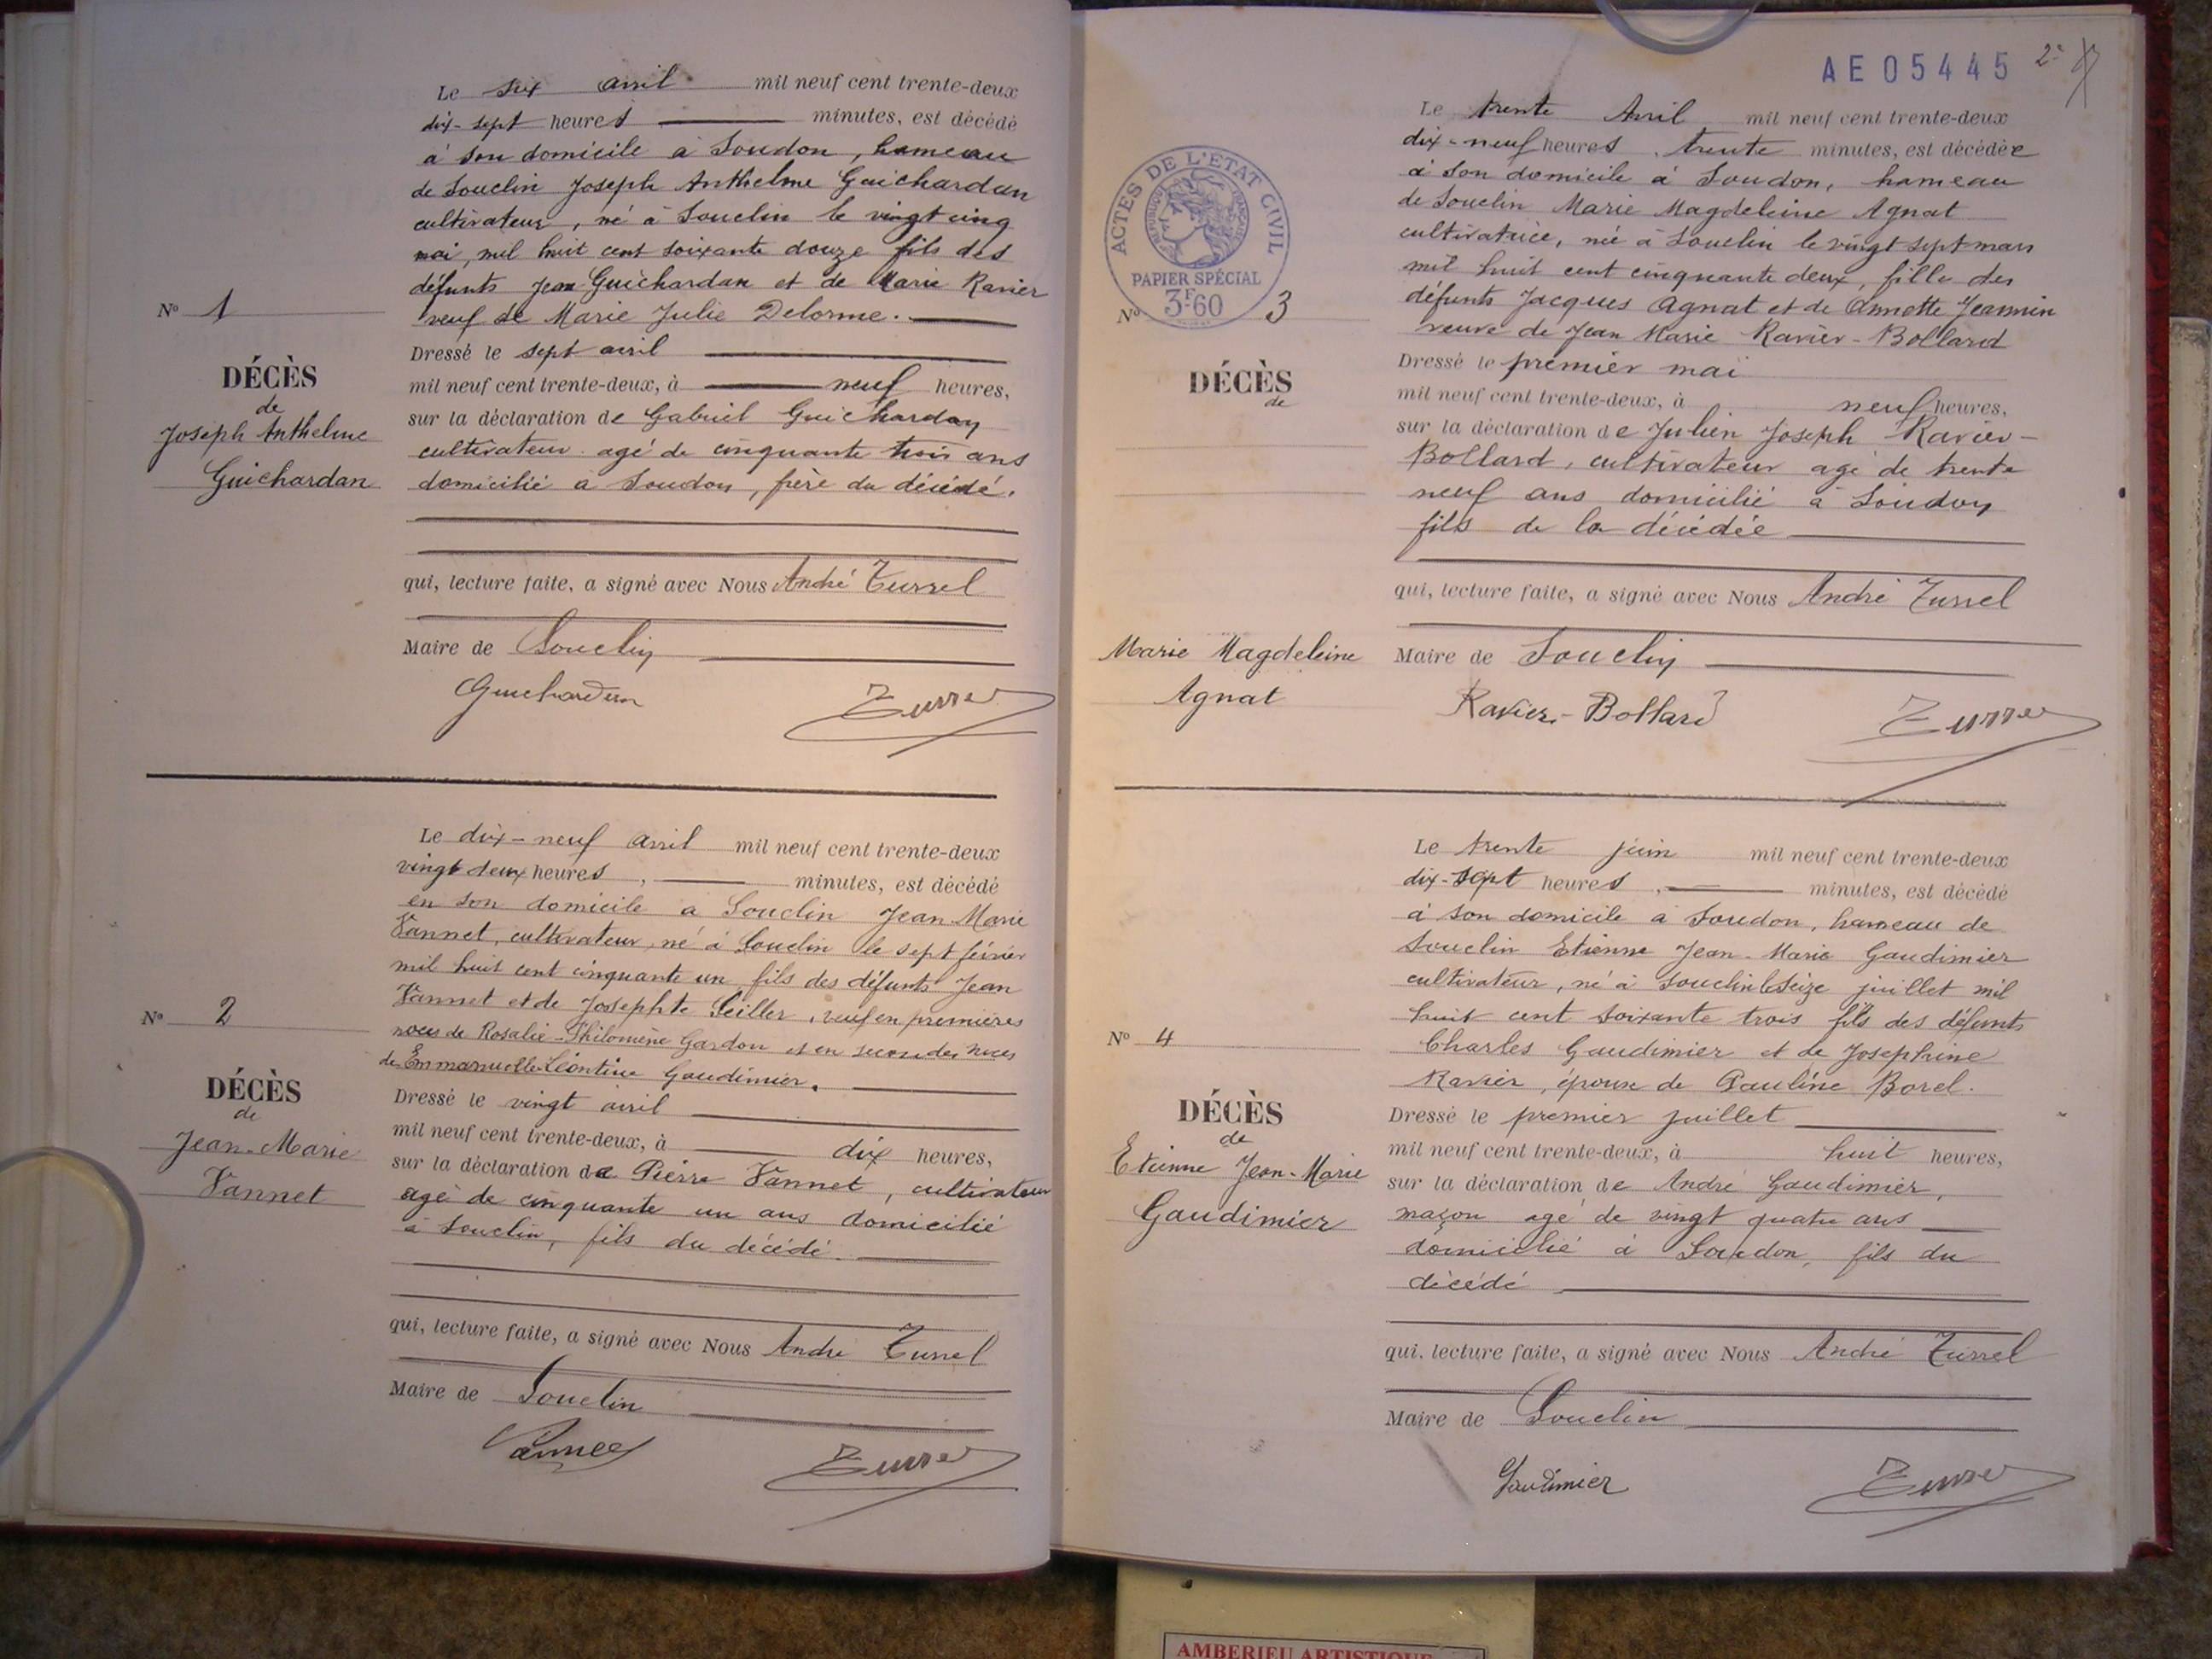 Le six avril mil neuf cent trente-deux
dix-sept heures minutes, est décédé
à son domicile à Soudon, hameau
de Souclin Joseph Anthelme Guichardan
cultivateur, né à Souclin le vingt cinq
mai, mil huit cent soixante douze fils des
défunts Jean Guichardan et de Marie Ravier
veuf de Marie Julie Delorme.
Dressé le sept avril
mil neuf cent trente-deux, à neuf heures,
sur la déclaration de Gabriel Guichardan
cultivateur agé de cinquante trois ans
domicilié à Soudon, frère du décédé.
qui, lecture faite, a signé avec Nous André Turrel
Maire de Souclin
Guichardan
Turrel
No 1
DÉCÈS
de
Joseph Anthelme
Guichardan
Le dix-neuf avril mil neuf cent trente-deux
vingt deux heures, minutes, est décédé
en son domicile à Souclin Jean-Marie
Vannet, cultivateur, né à Souclin le sept février
mil huit cent cinquante un fils des défunts Jean
Vannet et de Josephte Seiller, veuf en premières
noces de Rosalie-Philomène Gardon et en secondes noces
de Emmanuelle Léontine Gaudimier.
Dressé le vingt avril
mil neuf cent trente-deux, à dix heures,
sur la déclaration de Pierre Vannet, cultivateur
agé de cinquante un ans domicilié
à Souclin, fils du décédé.
qui, lecture faite, a signé avec Nous André Turrel
Maire de Souclin
Vannet
Turrel
No 2
DÉCÈS
de
Jean-Marie
Vannet
AE05445
2e
ACTES DE L'ETAT CIVIL
REPUBLIQUE FRANÇAISE
PAPIER SPÉCIAL
3F60
No 3
DÉCÈS
de
Marie Magdeleine
Agnat
Le trente Avril mil neuf cent trente-deux
dix-neuf heures, trente minutes, est décédée
à son domicile à Soudon, hameau
de Souclin Marie Magdeleine Agnat
cultivatrice, née à Souclin le vingt sept mars
mil huit cent cinquante deux, fille des
défunts Jacques Agnat et de Annette Jeannin
veuve de Jean Marie Ravier-Bollard
Dressé le premier mai
mil neuf cent trente-deux, à neuf heures,
sur la déclaration de Julien Joseph Ravier-
Bollard, cultivateur agé de trente
neuf ans domicilié à Soudon
fils de la décédée
qui, lecture faite, a signé avec Nous André Turrel
Maire de Souclin
Ravier-Bollard
Turrel
Le trente juin mil neuf cent trente-deux
dix-sept heures, minutes, est décédé
à son domicile à Soudon, hameau de
Souclin Etienne Jean-Marie Gaudimier
cultivateur, né à Souclin le seize juillet mil
huit cent soixante trois fils des défunts
Charles Gaudimier et de Josephine
Ravier, époux de Pauline Borel.
Dressé le premier juillet
mil neuf cent trente-deux, à huit heures,
sur la déclaration de André Gaudimier,
maçon agé de vingt quatre ans
domicilié à Soudon, fils du
décédé
qui, lecture faite, a signé avec Nous André Turrel
Maire de Souclin
Gaudimier
Turrel
No 4
DÉCÈS
de
Etienne Jean-Marie
Gaudimier
AMBERIEU ARTISTIQUE